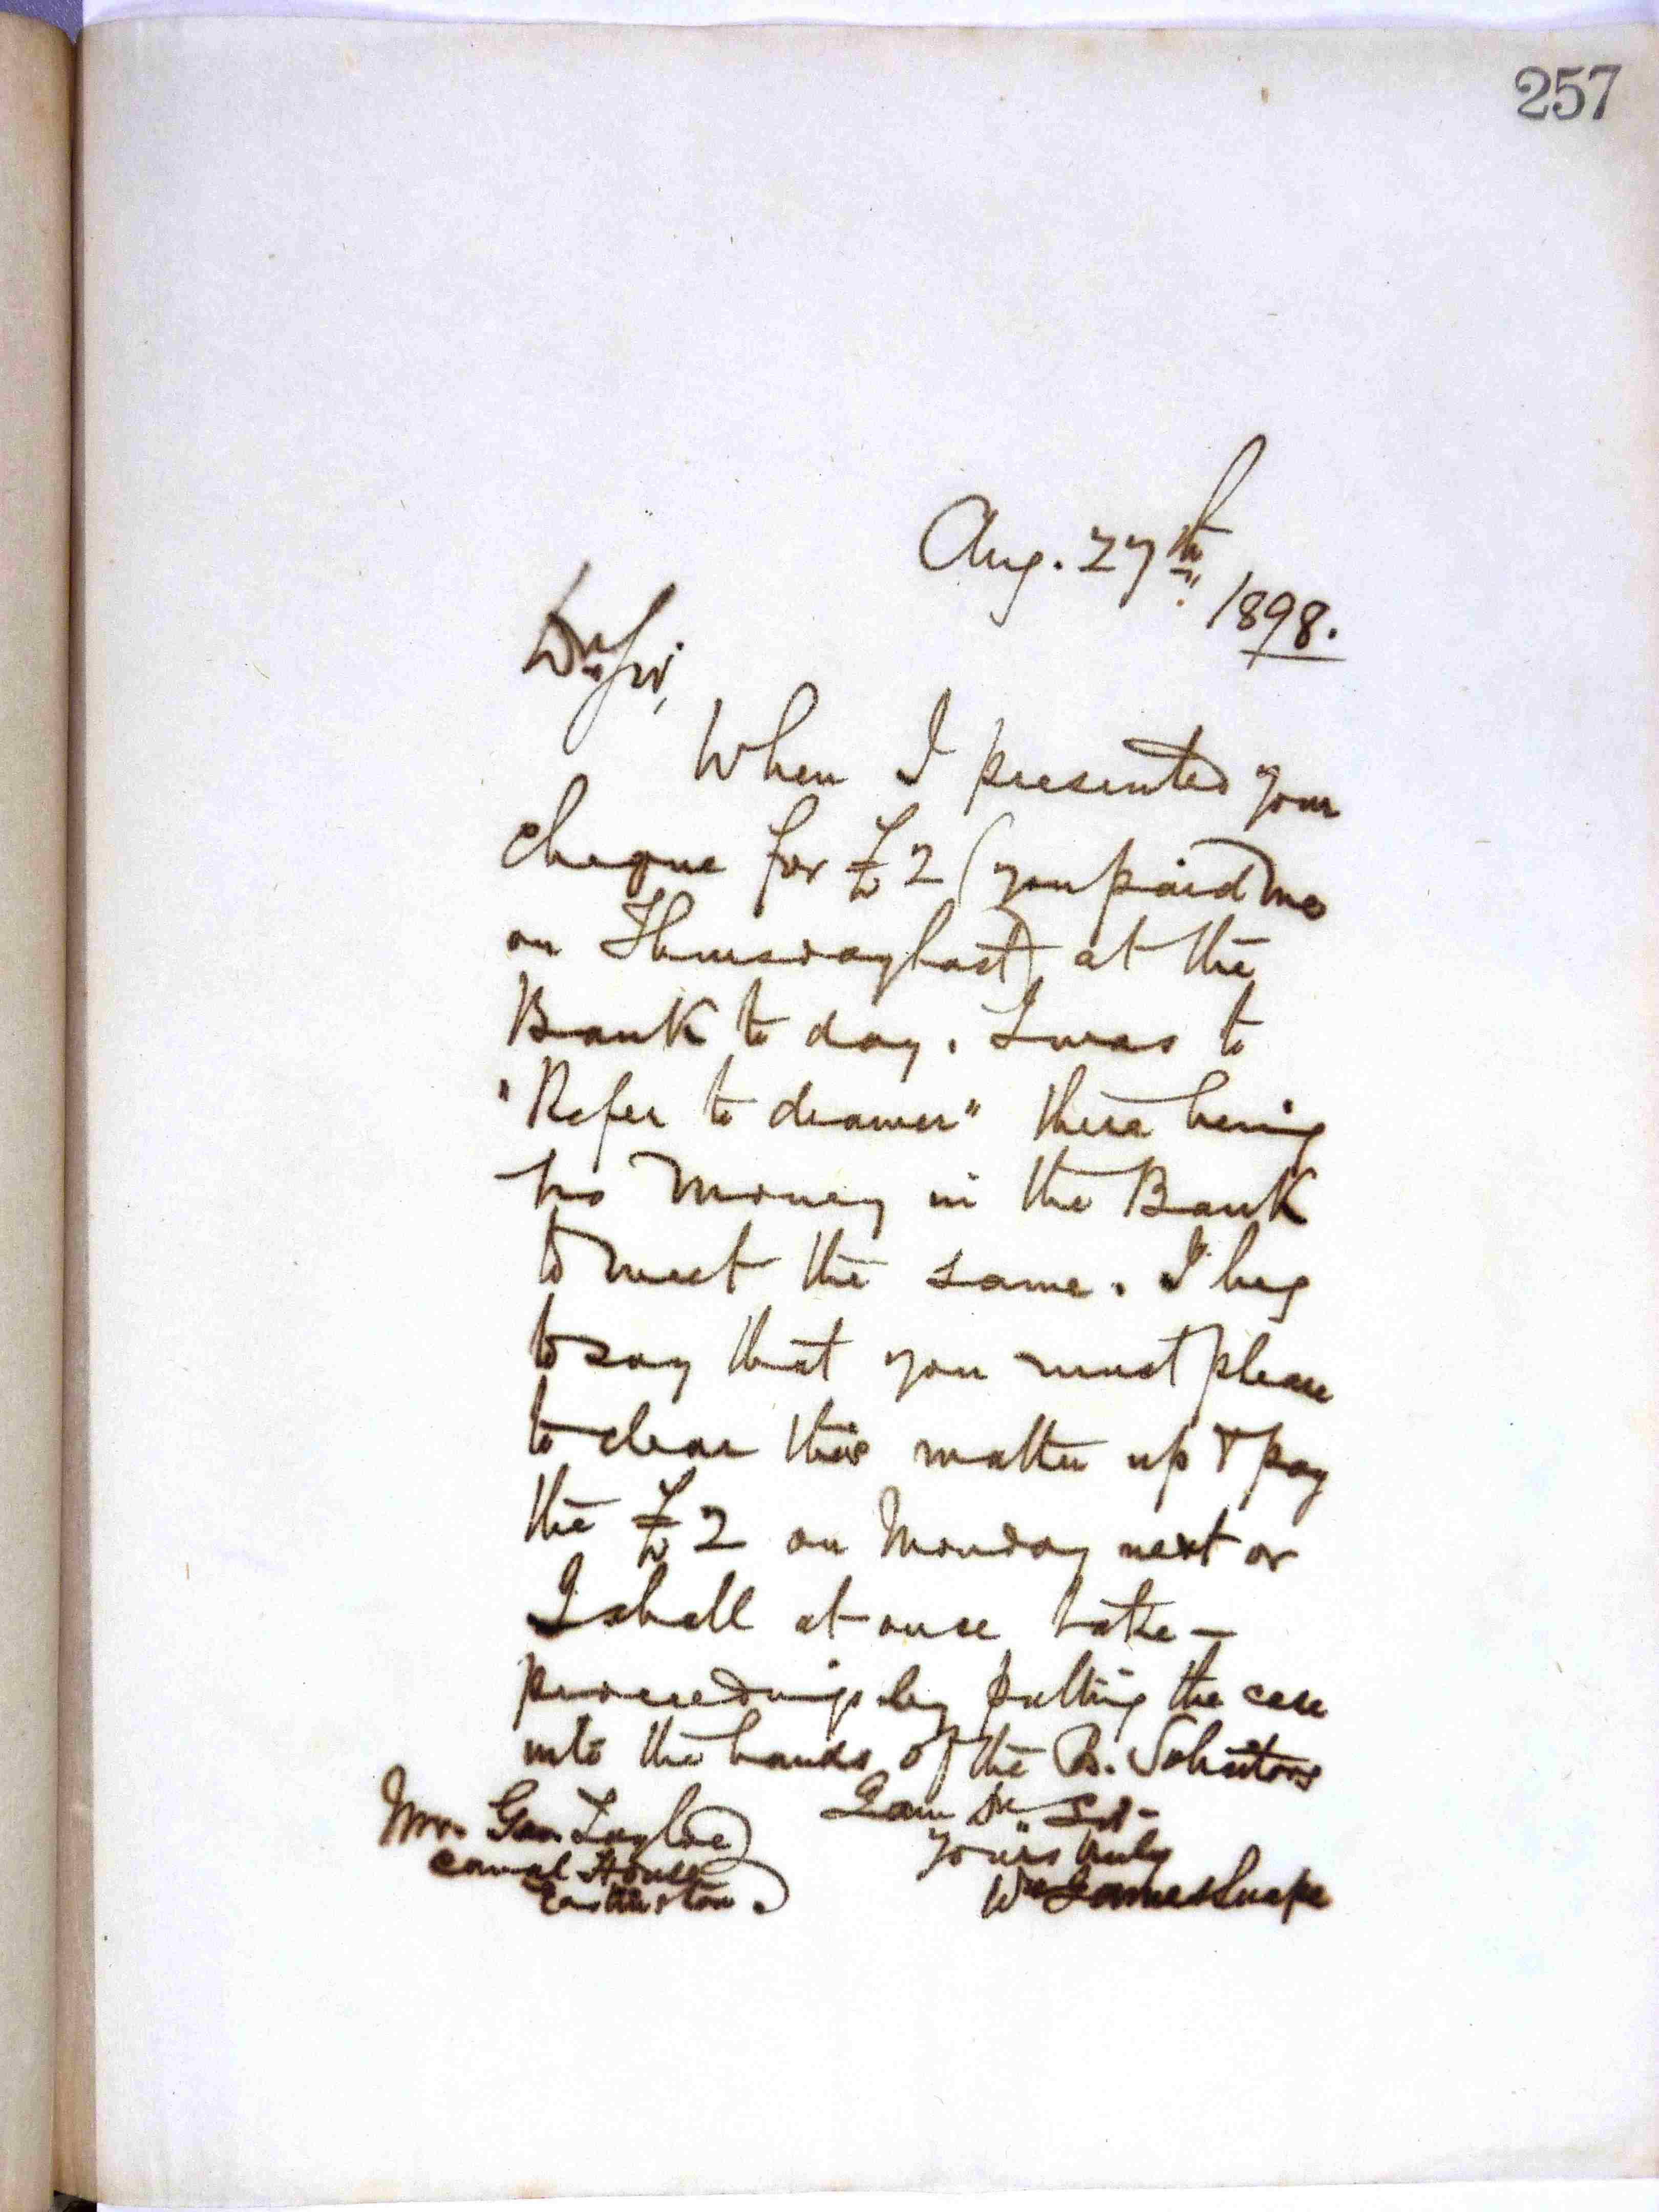 257
Aug. 27th
1898.
Dr Sir,
When I presented your
cheque for £2 (you paid me
on Thursday last) at the
Bank to day. I was to
"Refer to drawer" there being
no money in the Bank
to meet the same. I beg
to say that you must please
to clear this matter up & pay
the £2 on Monday next or
I shall at once take –
proceedings by putting the case
into the hands of the B. Solicitors
I am Dr Sir
yours truly
Wm James Snape
Mr. Geo. Taylor
Canal House
Eastington.